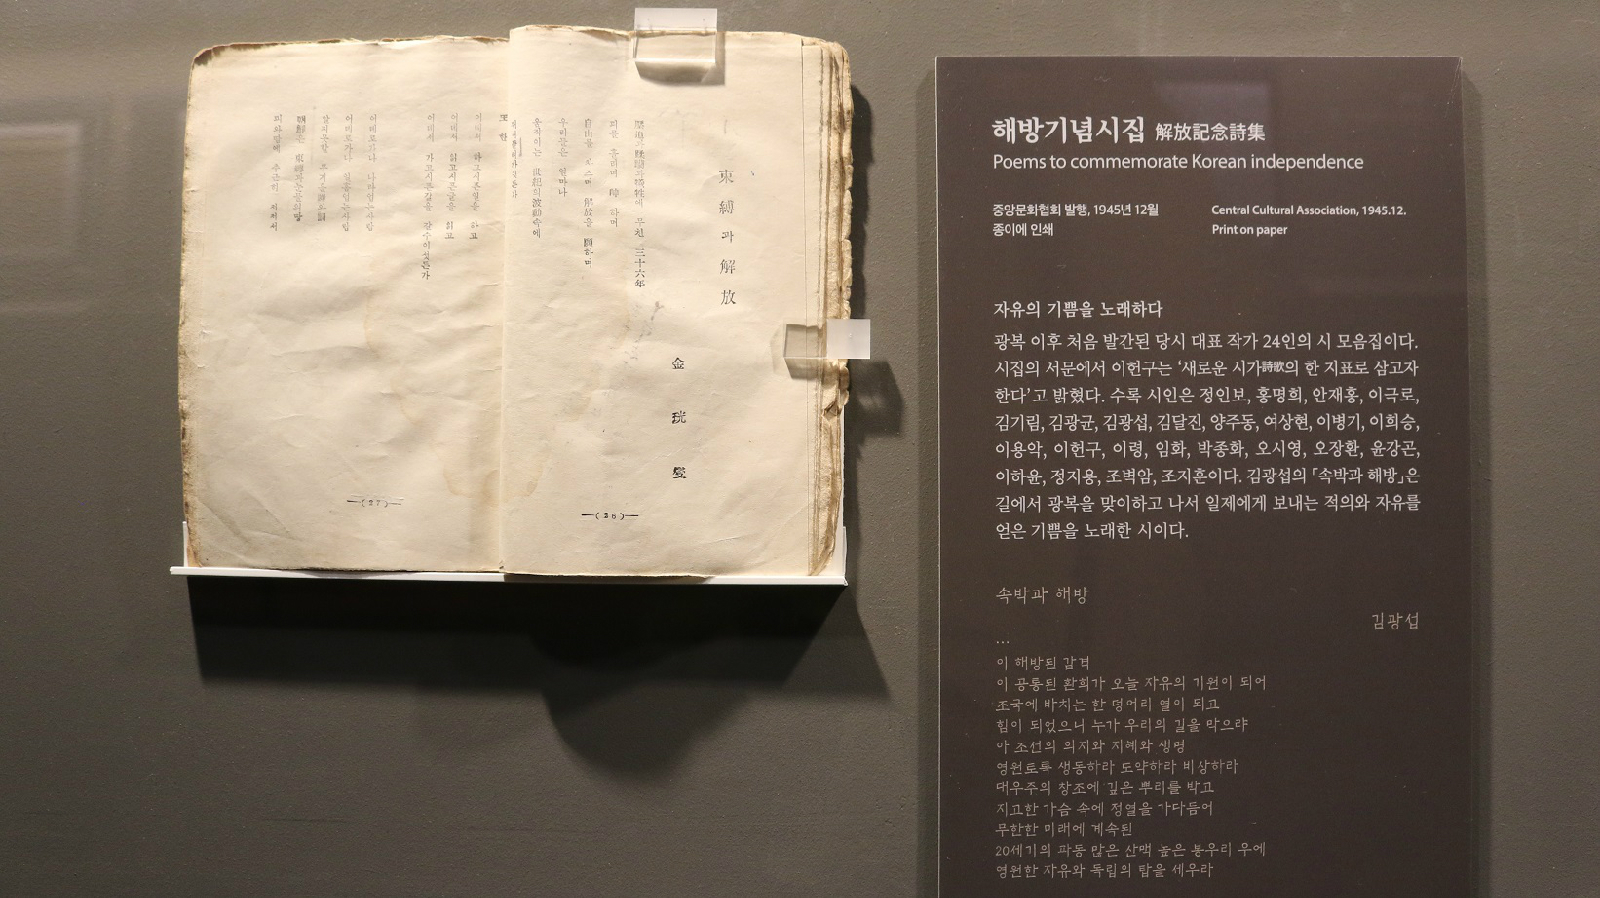 束縛과 解放
金珖燮
壓迫과 蹂躪과 犧牲에 무친 三十六年
피를 흘리며
自由를 차즈며 解放을 願하며
우리들은 얼마나
움직이는 世紀의 波動속에
(26)
하고시픈일을 하고
읽고시픈글을 읽고
가고시픈길을
어데로가나 나라업는사람
어데로가나 일흠업는사람
朝鮮은 束縛과눈물의땅
(27)
해방기념시집 解放記念詩集
Poems to commemorate Korean independence
중앙문화협회 발행, 1945년 12월
종이에 인쇄
Central Cultural Association, 1945.12.
Print on paper
자유의 기쁨을 노래하다
광복 이후 처음 발간된 당시 대표 작가 24인의 시 모음집이다.
시집의 서문에서 이헌구는 ‘새로운 시가詩歌의 한 지표로 삼고자
한다’고 밝혔다. 수록 시인은 정인보, 홍명희, 안재홍, 이극로,
김기림, 김광균, 김광섭, 김달진, 양주동, 여상현, 이병기, 이희승,
이용악, 이헌구, 이령, 임화, 박종화, 오시영, 오장환, 윤강곤,
이하윤, 정지용, 조벽암, 조지훈이다. 김광섭의 「속박과 해방」은
길에서 광복을 맞이하고 나서 일제에게 보내는 적의와 자유를
얻은 기쁨을 노래한 시이다.
속박과 해방
김광섭
...
이 해방된 감격
이 공통된 환희가 오늘 자유의 기원이 되어
조국에 바치는 한 덩어리 열이 되고
힘이 되었으니 누가 우리의 길을 막으랴
아 조선의 의지와 지혜와 생명
영원토록 생동하라 도약하라 비상하라
대우주의 창조에 깊은 뿌리를 박고
지고한 가슴 속에 정열을 가다듬어
무한한 미래에 계속된
20세기의 파동 많은 산맥 높은 봉우리 우에
영원한 자유와 독립의 탑을 세우라